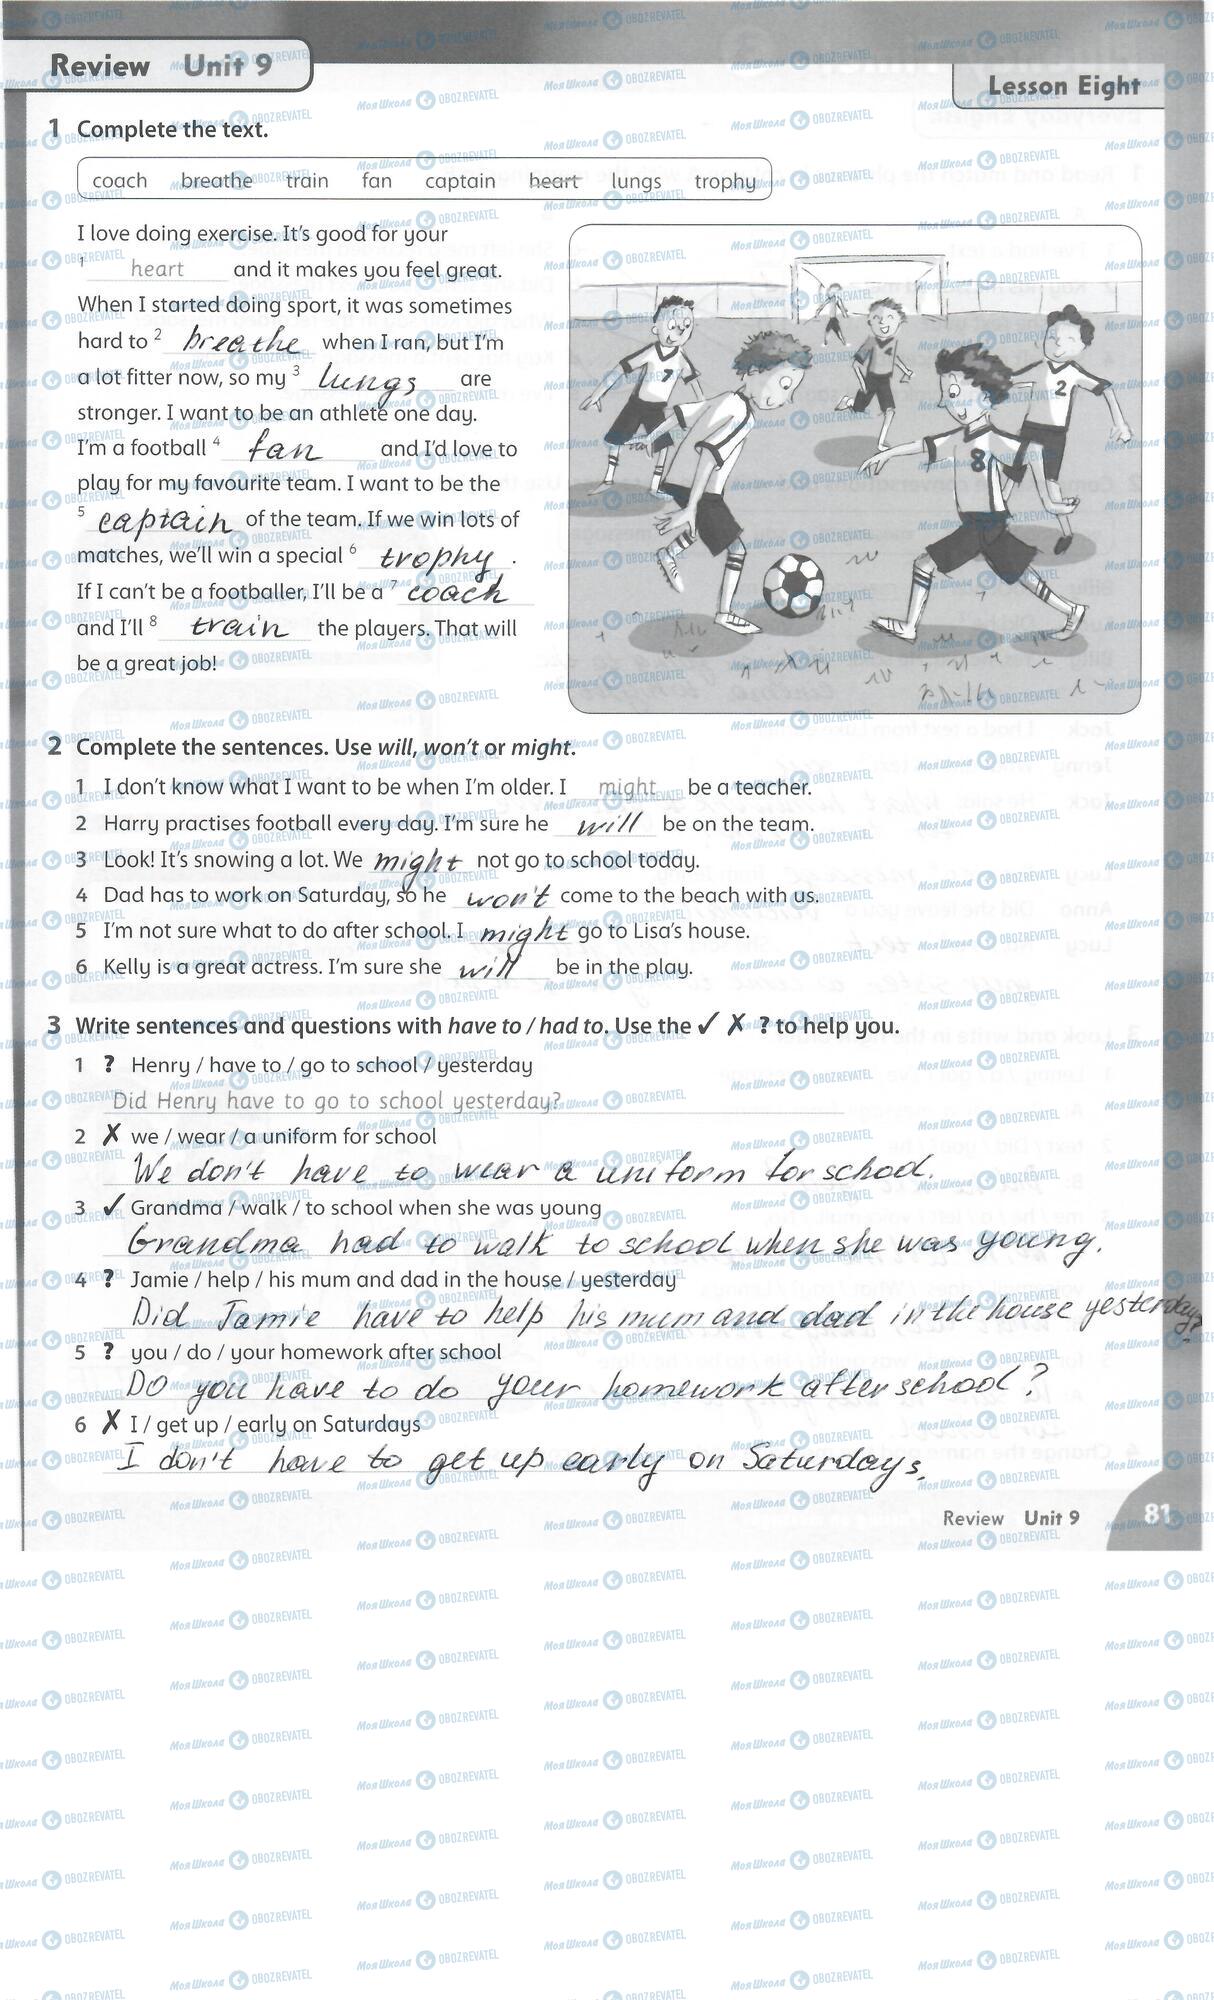 Review Unit 9
Lesson Eight
1 Complete the text.
coach breathe train fan captain heart lungs trophy
I love doing exercise. It's good for your
1 heart and it makes you feel great.
When I started doing sport, it was sometimes
hard to 2 breathe when I ran, but I'm
a lot fitter now, so my 3 lungs are
stronger. I want to be an athlete one day.
I'm a football 4 fan and I'd love to
play for my favourite team. I want to be the
5 captain of the team. If we win lots of
matches, we'll win a special 6 trophy.
If I can't be a footballer, I'll be a 7 coach
and I'll 8 train the players. That will
be a great job!
7
8
2
2 Complete the sentences. Use will, won't or might.
1 I don't know what I want to be when I'm older. I might be a teacher.
2 Harry practises football every day. I'm sure he will be on the team.
3 Look! It's snowing a lot. We might not go to school today.
4 Dad has to work on Saturday, so he won't come to the beach with us.
5 I'm not sure what to do after school. I might go to Lisa's house.
6 Kelly is a great actress. I'm sure she will be in the play.
3 Write sentences and questions with have to / had to. Use the ✓ ✗ ? to help you.
1 ? Henry / have to / go to school / yesterday
Did Henry have to go to school yesterday?
2 ✗ we / wear / a uniform for school
We don't have to wear a uniform for school.
3 ✓ Grandma / walk / to school when she was young
Grandma had to walk to school when she was young.
4 ? Jamie / help / his mum and dad in the house / yesterday
Did Jamie have to help his mum and dad in the house yesterday?
5 ? you / do / your homework after school
Do you have to do your homework after school?
6 ✗ I / get up / early on Saturdays
I don't have to get up early on Saturdays.
Review Unit 9 81
МояШкола OBOZREVATEL